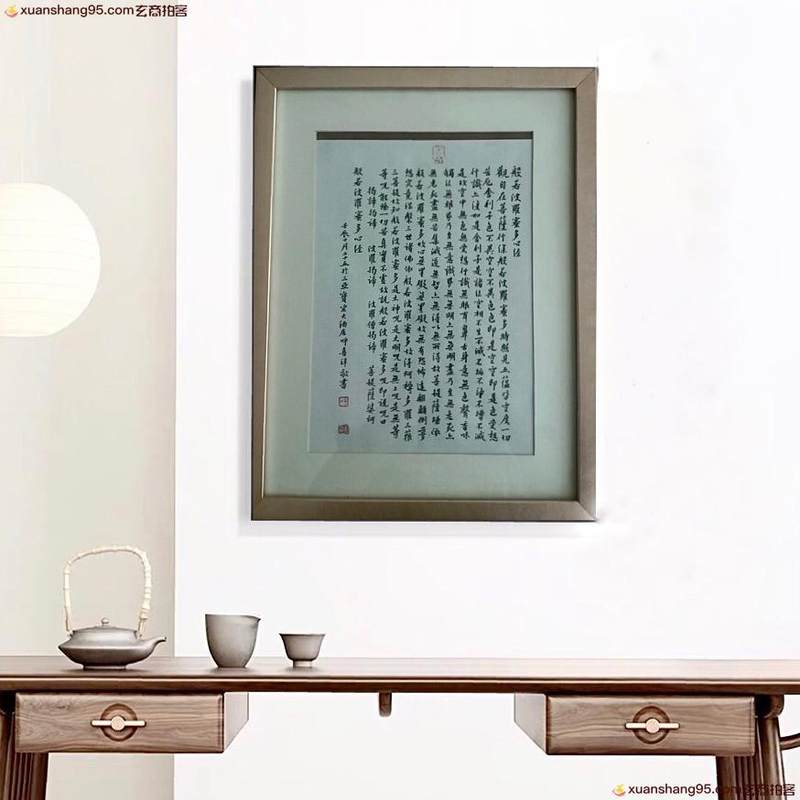 xuanshang95.com玄商拍客
xuanshang95.com玄商拍客
般若波羅蜜多心經
觀自在菩薩行深般若波羅蜜多時照見五蘊皆空度一切
苦厄舍利子色不異空空不異色色即是空空即是色受想
行識亦復如是舍利子是諸法空相不生不滅不垢不淨不增不減
是故空中無色無受想行識無眼耳鼻舌身意無色聲香味
觸法無眼界乃至無意識界無無明亦無無明盡乃至無老死亦
無老死盡無苦集滅道無智亦無得以無所得故菩提薩埵依
般若波羅蜜多故心無罣礙無罣礙故無有恐怖遠離顛倒夢
想究竟涅槃三世諸佛依般若波羅蜜多故得阿耨多羅三藐
三菩提故知般若波羅蜜多是大神咒是大明咒是無上咒是無等
等咒能除一切苦真實不虛故說般若波羅蜜多咒即說咒曰
揭諦揭諦 波羅揭諦 波羅僧揭諦 菩提薩婆訶
般若波羅蜜多心經
於三亞寶宏大酒店 敬書
xuanshang95.com玄商拍客
xuanshang95.com玄商拍客